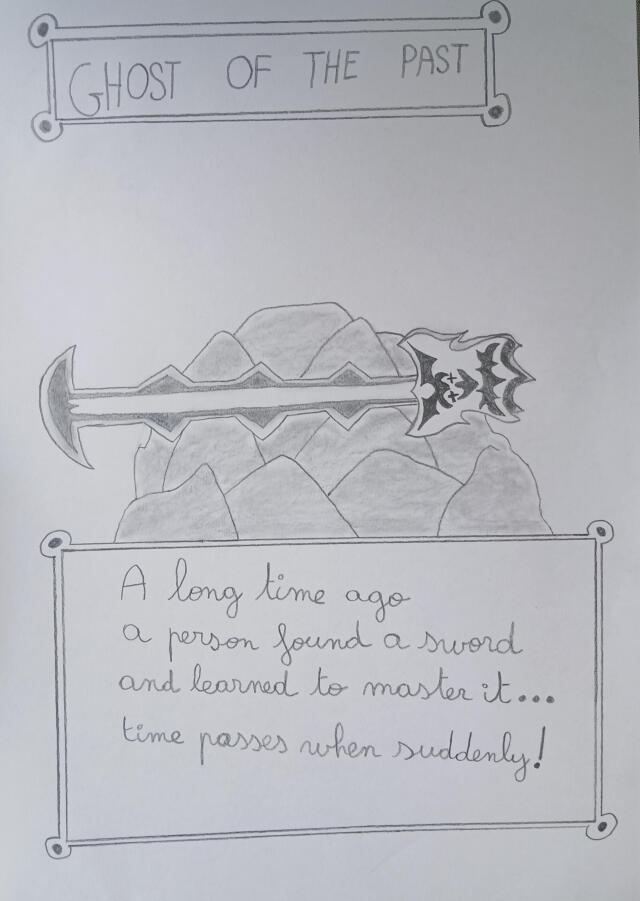 GHOST OF THE PAST
A long time ago
a person found a sword
and learned to master it...
time passes when suddenly!